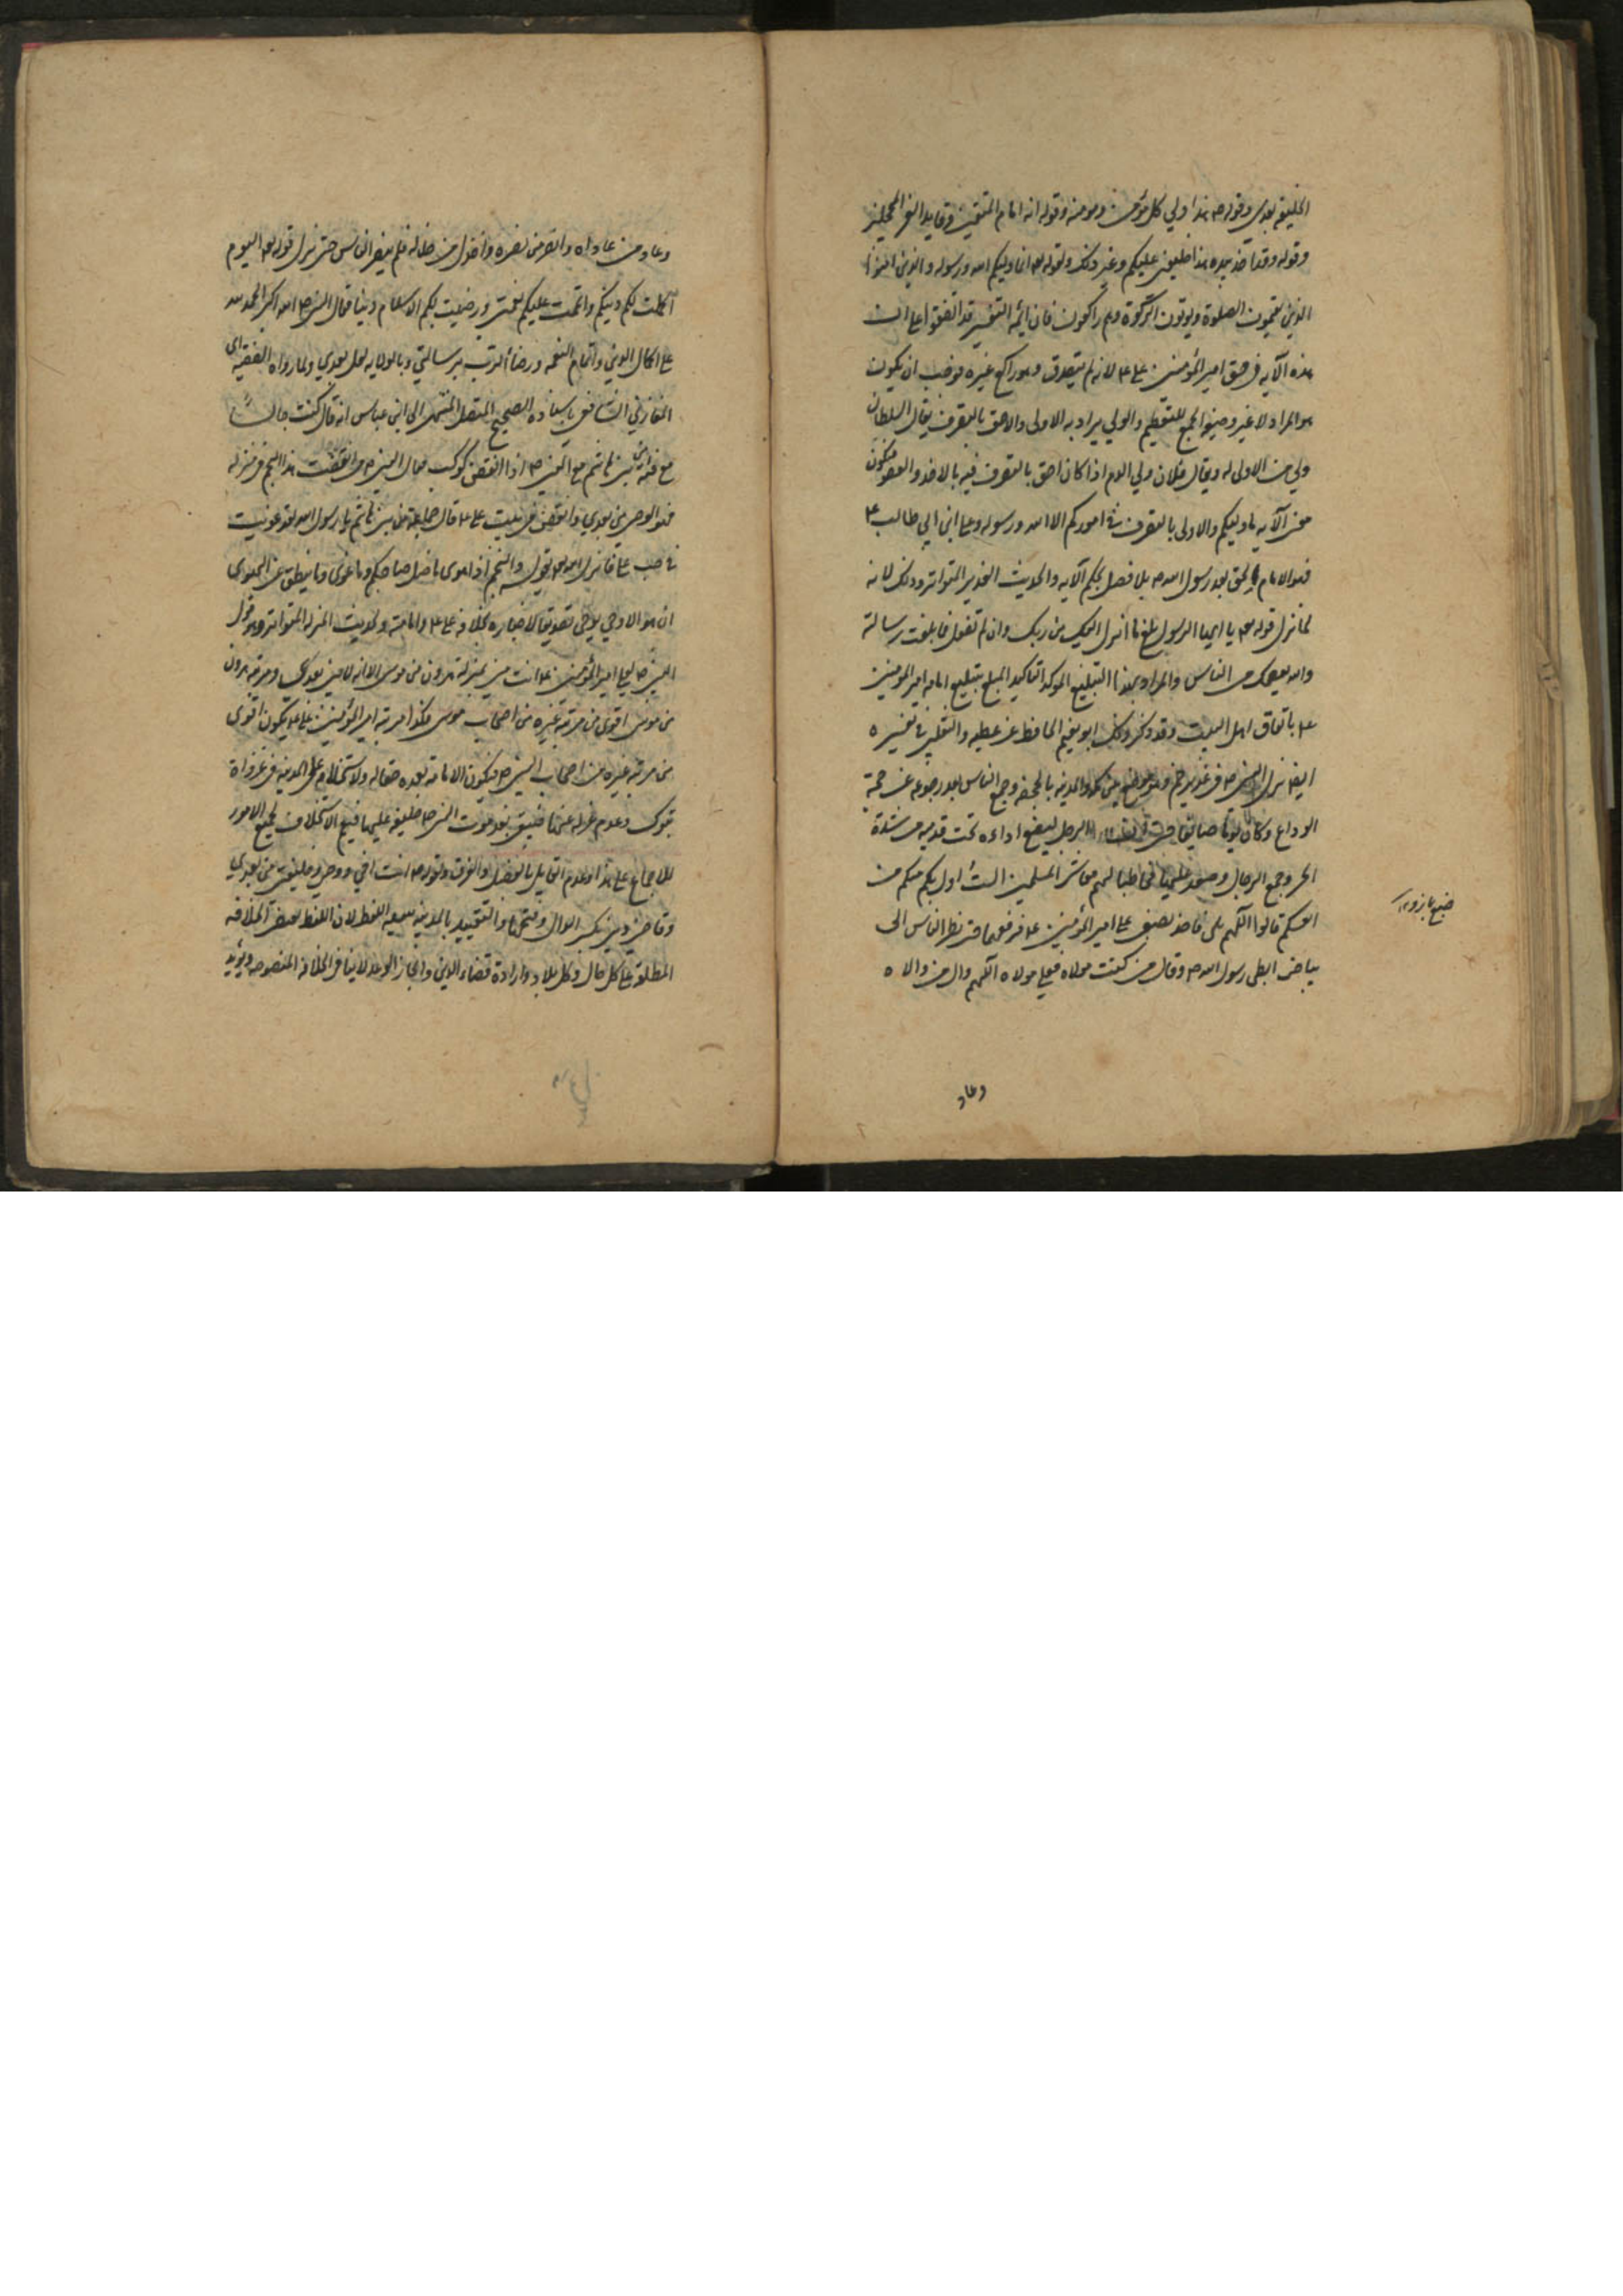 الخليفة بعدي وقوله ص هذا ولي كل مؤمن ومومنة وقوله انه امام المتقين وقايد الغر المحجلين
وقوله وقد اخذ بيده هذا خليفتي عليكم وغير ذلك ولقوله تعه انما وليكم الله ورسوله والذين امنوا
الذين يقيمون الصلوة ويوتون الزكوة وهم راكعون فان ائمة التفسير قد اتفقوا على ان
هذه الآية في حق امير المؤمنين علي ع لانه لم يتصدق وهو راكع غيره فوجب ان يكون
هو المراد لا غير وصيغة الجمع للتعظيم والولي يراد به الاولى والاحق بالتصرف يقال السلطان
ولي من لا ولي له ويقال فلان ولي الدم اذا كان احق بالتصرف فيه بالاخذ والعفو فيكون
معنى الآية ما وليكم والاولى بالتصرف في اموركم الا الله ورسوله وعلي ابن ابي طالب ع
فهو الامام الحق بعد رسول الله ص بلا فصل بحكم الآية والحديث الغدير المتواتر وذلك لانه
لما نزل قوله تعه يا ايها الرسول بلغ ما انزل اليك من ربك وان لم تفعل فما بلغت رسالته
والله يعصمك من الناس والمراد بهذا التبليغ الموكد التاكيد المبلغ تبليغ امامة امير المومنين
ع باتفاق اهل البيت وقد ذكر ذلك ابو نعيم الحافظ عن عطية والثعلبي في تفسيره
ايضا نزل النبي ص في غدير خم وهو موضع بين مكة والمدينة بالجحفة وجمع الناس بعد رجوعه عن حجة
الوداع وكان يوما صايفا حتى ان الرجل ليضع رداءه تحت قدميه من شدة
الحر وجمع الرحال وصعد عليها مخاطبا لهم معاشر المسلمين الست اولى بكم منكم من
انفسكم قالوا اللهم بلى فاخذ بضبعي علي امير المؤمنين ع فرفعهما حتى نظر الناس الى
بياض ابطي رسول الله ص وقال من كنت مولاه فعلي مولاه اللهم وال من والاه
ضبع بازو ١٢
وعاد
وعاد من عاداه وانصر من نصره واخذل من خذله فلم يتفر الناس حتى نزل قوله تعه اليوم
اكملت لكم دينكم واتممت عليكم نعمتي ورضيت لكم الاسلام دينا فقال النبي ص الله اكبر الحمد لله
على اكمال الدين واتمام النعمة ورضاء الرب برسالتي وبالولاية لعلي بعدي ولما رواه الفقيه ابن
المغازلي الشافعي باسناده الصحيح المتصل المنتهى الى ابن عباس انه قال كنت جالسًا
مع فتية من بني هاشم مع النبي ص اذا انقض كوكب فقال النبي ص من انقضت هذا النجم في منزله
فهو الوصي من بعدي وانقض في بيت علي ع قال جماعة من بني هاشم يا رسول الله لقد غويت
في حب علي فانزل الله تعه بقوله والنجم اذا هوى ما ضل صاحبكم وما غوى وما ينطق عن الهوى
ان هو الا وحي يوحى تصديقا لاخباره بخلافة علي ع وامامته ولحديث المنزلة المتواتر وهو قول
النبي ص لعلي امير المؤمنين ع انت مني بمنزلة هرون من موسى الا انه لا نبي بعدي ومرتبة هرون
من موسى اقوى من مرتبة غيره من اصحاب موسى فكذا مرتبة امير المؤمنين علي ع يكون اقوى
من مرتبة غيره من اصحاب النبي ص فيكون الامامة بعده حقا له ولاستخلافه على المدينة في غزواة
تبوك وعدم عزله عنها فيبقى بعد موت النبي ص خليفة عليها فيعم الاستخلاف لجميع الامور
للاجماع على هذا وعدم القايل بالفصل والفرق ولقوله ص انت اخي ووصي وخليفتي من بعدي
وقاضي ديني بكسر الدال وفتحها والتقييد بالمدينة اللفظ لان اللفظ الخلافة
المطلقة على كل حال وكل بلاد وارادة قضاء الدين وانجاز الوعد لا ينافي الخلافة المنصوصة ويؤيد